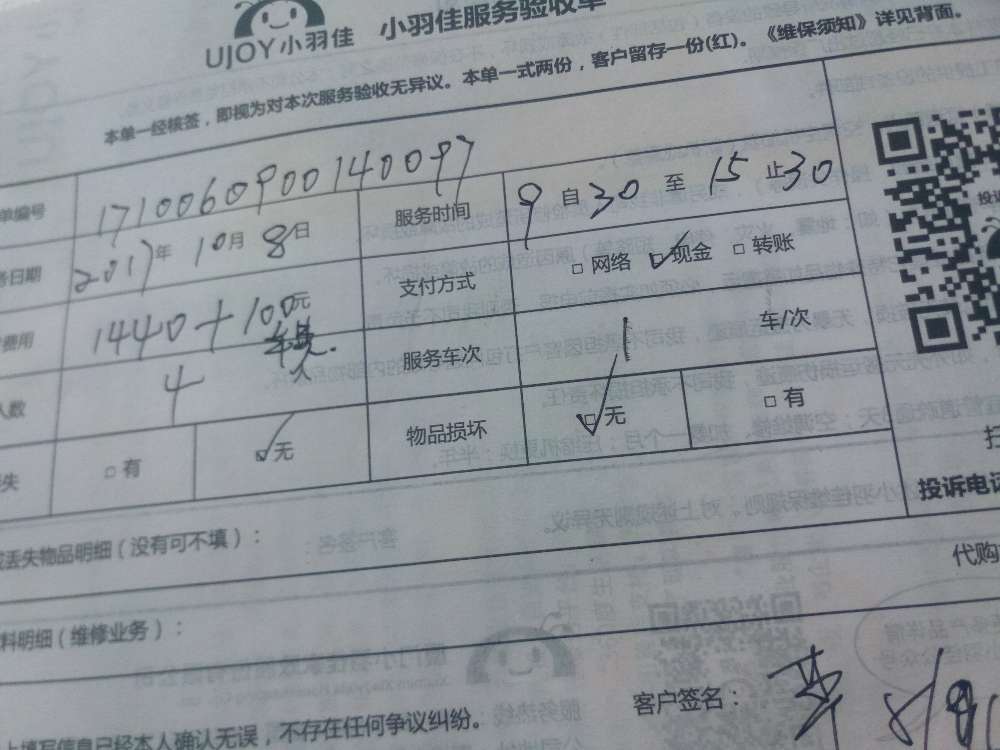 UJOY小羽佳 小羽佳服务验收单
本单一经核签，即视为对本次服务验收无异议。本单一式两份，客户留存一份(红)。《维保须知》详见背面。
单编号 1710060900140097 服务时间 9 自 30 至 15 止 30
日期 2017年 10月 8日 支付方式 □ 网络 ☑ 现金 □ 转账
费用 1440+100元 服务车次 1 车/次
人数 4
失 □ 有 ☑ 无 物品损坏 ☑ 无 □ 有
投诉电话
丢失物品明细（没有可不填）：
代购
料明细（维修业务）：
客户签名：
上填写信息已经本人确认无误，不存在任何争议纠纷。